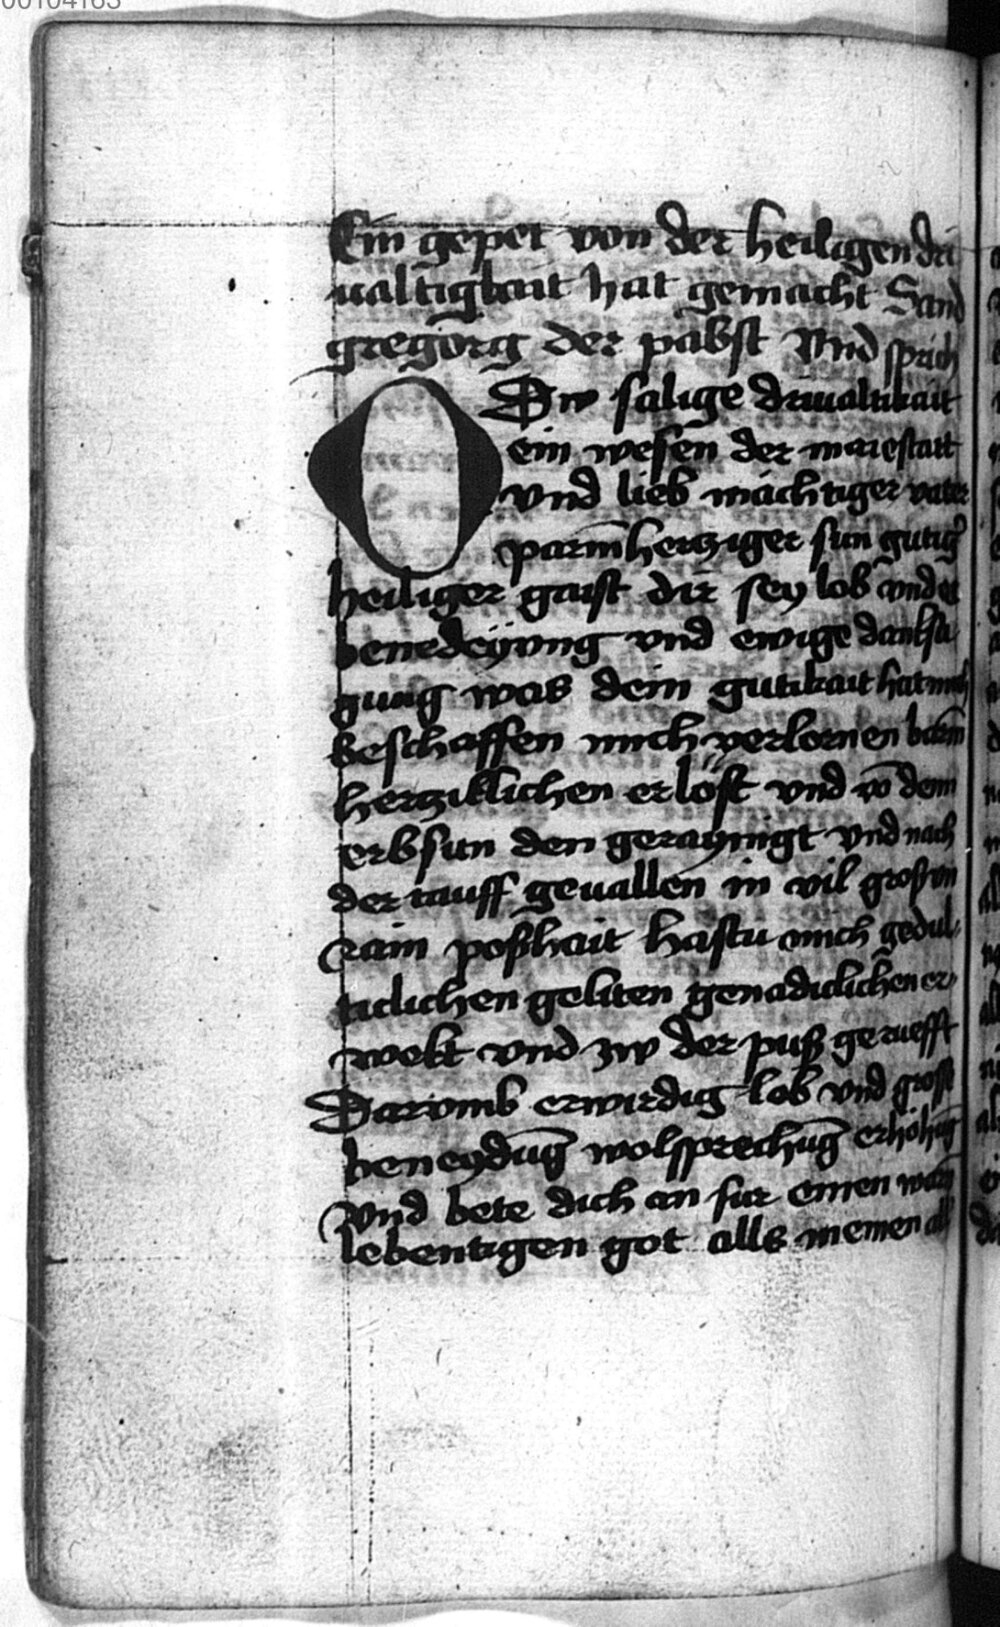 Ein gepet von der heiligen dri
ualtigkait hat gemacht Sand
gregörg der pabst Vnd sprich
O Dw salige driualtikait
ein wesen der maiestatt
vnd lieb mächtiger vater
parm̄hertziger sun gutig̉
heiliger gaist dir sey lob vnd
benedeyung vnd ewige danksa
gung was dein gutikait hat mich
beschaffen mich verlornen barm̄
hertziklichen erlöst vnd vō dem
erbsun den geraynigt vnd nach
der tauff geuallen in vil grosß vn
rain poßhait hastu mich gedul
ticlichen geliten genadiclichen er
wekt vnd zw der puß geruefft
Darvmb erwirdig lob vnd groß
beneydūg wolsprechūg erhöhūg
Vnd bete dich an fur einen warn
lebentigen got alls meinen all